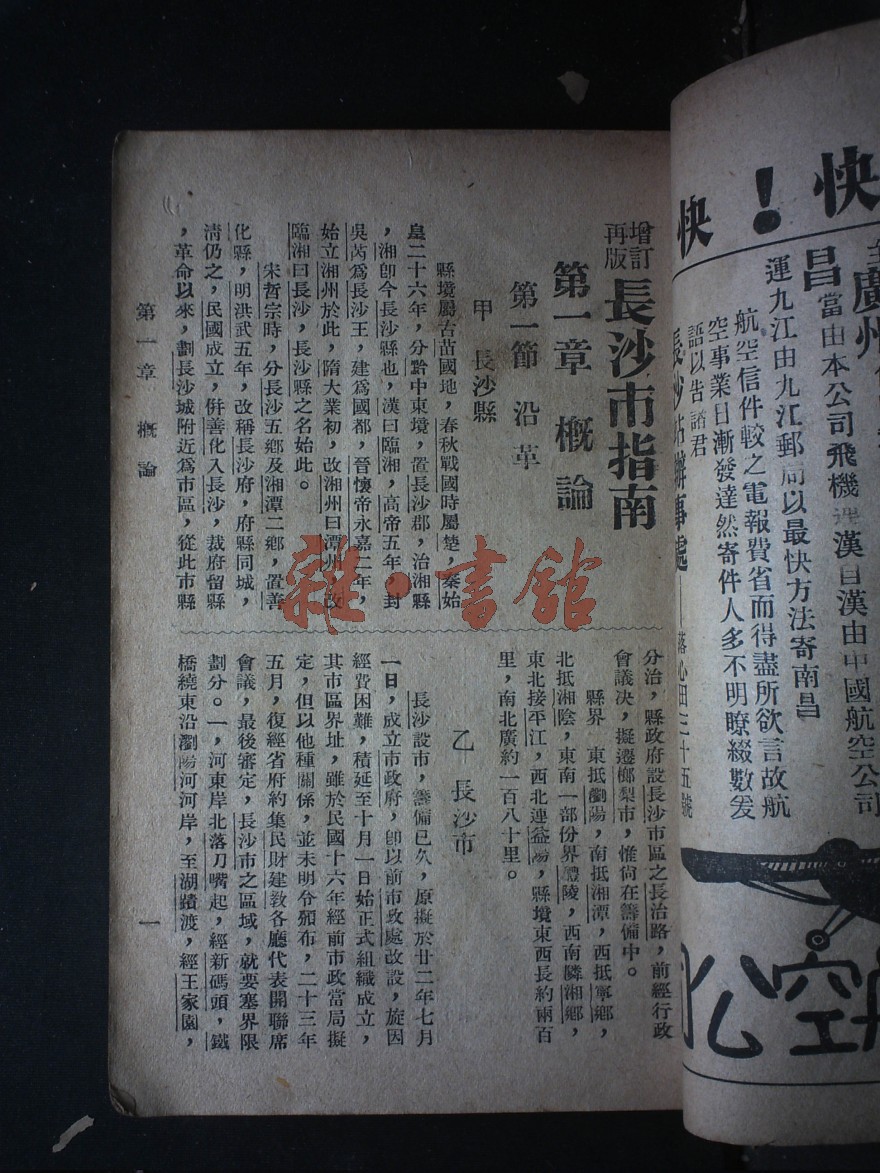 快！快
全
廣州
昌
當由本公司飛機運漢自漢由中國航空公司
運九江由九江郵局以最快方法寄南昌
航空信件較之電報費省而得盡所欲言故航
空事業日漸發達然寄件人多不明瞭綴數爰
語以告諸君
長沙站辦事處
落心田三十五號
航空公司
增訂再版
長沙市指南
第一章 概論
第一節 沿革
甲 長沙縣
縣境屬古苗國地，春秋戰國時屬楚，秦始
皇二十六年，分黔中東境，置長沙郡，治湘縣
，湘卽今長沙縣也，漢曰臨湘，高帝五年，封
吳芮爲長沙王，建爲國都，晉懷帝永嘉二年，
始立湘州於此，隋大業初，改湘州曰潭州，改
臨湘曰長沙，長沙縣之名始此。
宋哲宗時，分長沙五鄉及湘潭二鄉，置善
化縣，明洪武五年，改稱長沙府，府縣同城，
清仍之，民國成立，倂善化入長沙，裁府留縣
，革命以來，劃長沙城附近爲市區，從此市縣
分治，縣政府設長沙市區之長治路，前經行政
會議决，擬遷㮾梨市，惟尙在籌備中。
縣界 東抵瀏陽，南抵湘潭，西抵寧鄉，
北抵湘陰，東南一部份界醴陵，西南隣湘鄉，
東北接平江，西北連益陽，縣境東西長約兩百
里，南北廣約一百八十里。
乙 長沙市
長沙設市，籌備已久，原擬於廿二年七月
一日，成立市政府，卽以前市政處改設，旋因
經費困難，積延至十月一日始正式組織成立，
其市區界址，雖於民國十六年經前市政當局擬
定，但以他種關係，並未明令頒布，二十三年
五月，復經省府約集民財建敎各廳代表開聯席
會議，最後審定，長沙市之區域，就要塞界限
劃分。一，河東岸北落刀嘴起，經新碼頭，鐵
橋繞東沿瀏陽河河岸，至湖蹟渡，經王家園，
第一章 概論
一
雜·書館